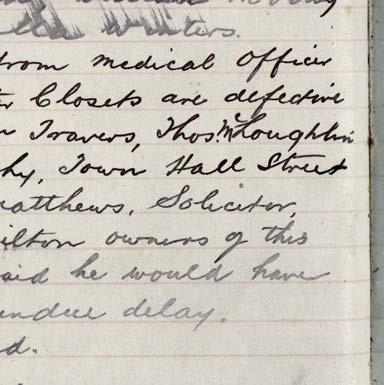 Winters.
from medical Officer
Closets are defective
Travers, Thos. McLoughlin
hy, Town Hall Street
matthews, Solicitor,
ilton owners of this
said he would have
undue delay.
d.